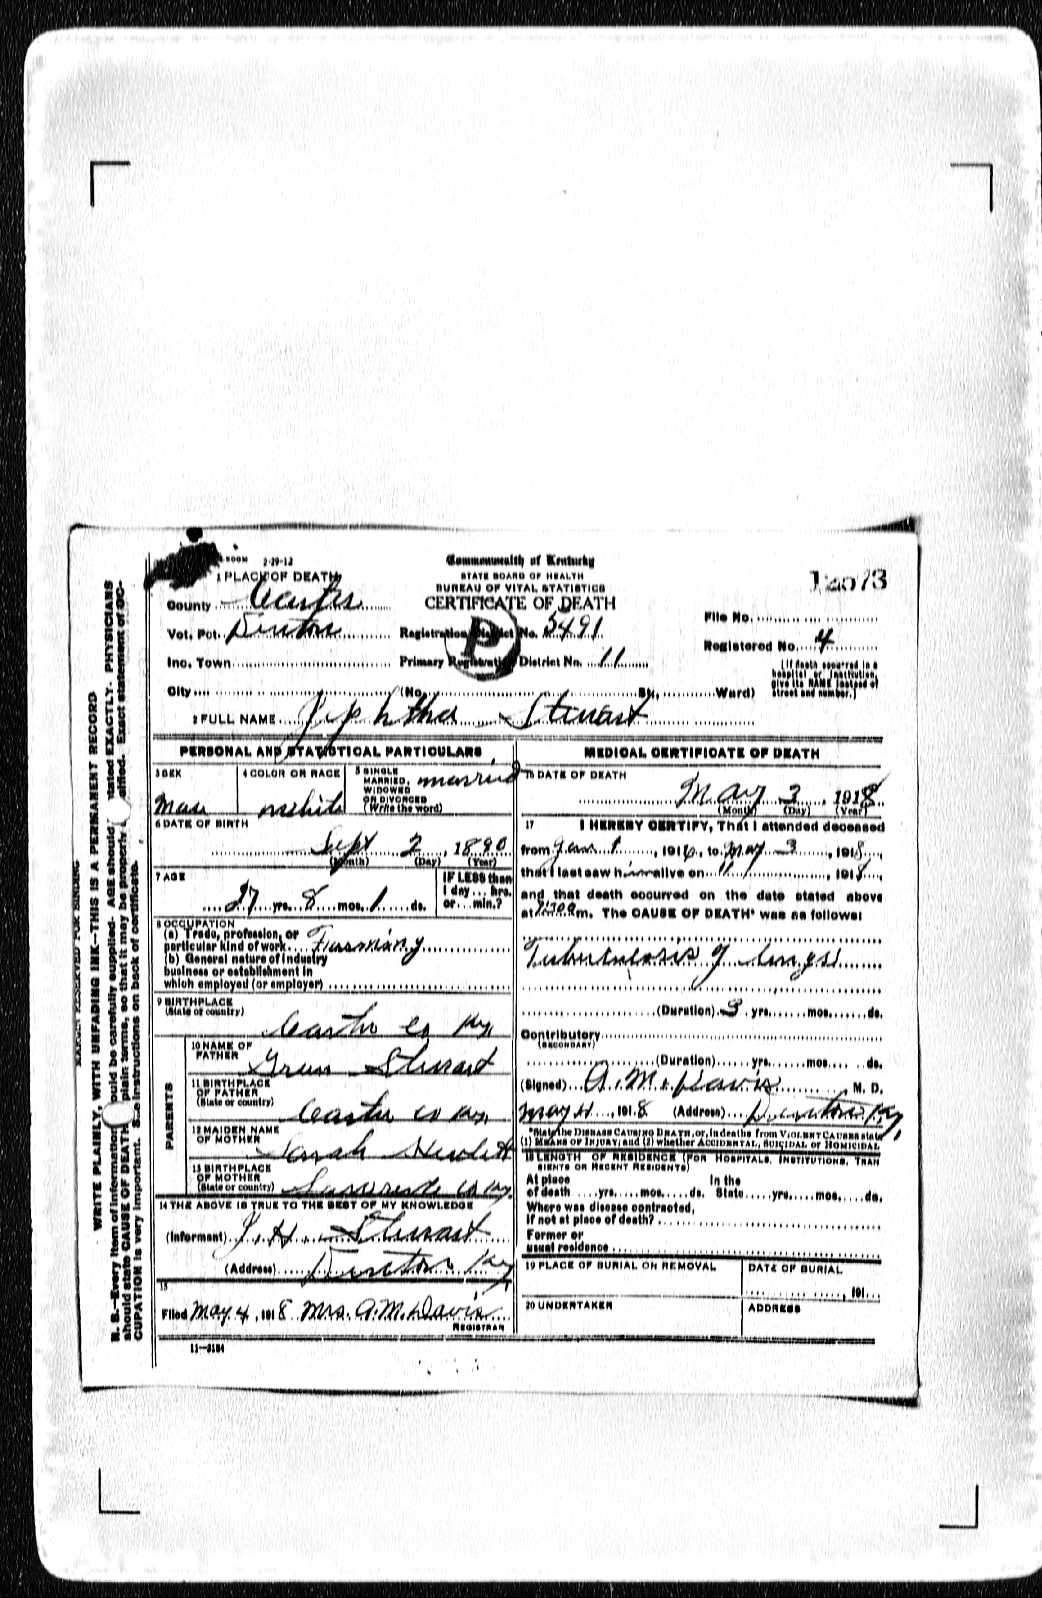 2-29-12
Commonwealth of Kentucky
STATE BOARD OF HEALTH
BUREAU OF VITAL STATISTICS
CERTIFICATE OF DEATH
1 PLACE OF DEATH
County Carter
Vot. Pct. Denton
Registration District No. 5491
File No.
Inc. Town
Primary Registration District No. 11
Registered No. 4
City (No. St., Ward)
[If death occurred in a hospital or institution, give its NAME instead of street and number.]
2 FULL NAME Jephtha Stewart
PERSONAL AND STATISTICAL PARTICULARS
3 SEX
Male
4 COLOR OR RACE
white
5 SINGLE MARRIED, WIDOWED OR DIVORCED (Write the word)
married
6 DATE OF BIRTH
Sept 2, 1890
(Month) (Day) (Year)
7 AGE
27 yrs. 8 mos. 1 ds.
IF LESS than 1 day ... hrs. or ... min.?
8 OCCUPATION
(a) Trade, profession, or
particular kind of work Farming
(b) General nature of industry
business or establishment in
which employed (or employer)
9 BIRTHPLACE
(State or country)
Carter Co Ky
PARENTS
10 NAME OF FATHER
Green Stewart
11 BIRTHPLACE OF FATHER
(State or country)
Carter Co Ky.
12 MAIDEN NAME OF MOTHER
Sarah Hewlett
13 BIRTHPLACE OF MOTHER
(State or country)
Lawrence Co Ky.
14 THE ABOVE IS TRUE TO THE BEST OF MY KNOWLEDGE
(Informant) J. H. Stewart
(Address) Denton Ky
15
Filed May 4, 1918 Mrs. A. M. Davis
REGISTRAR
11—3184
MEDICAL CERTIFICATE OF DEATH
16 DATE OF DEATH
May 3, 1918
(Month) (Day) (Year)
17 I HEREBY CERTIFY, That I attended deceased
from Jan 1, 1916, to May 3, 1918,
that I last saw him alive on 11, 1918,
and that death occurred on the date stated above
at m. The CAUSE OF DEATH* was as follows:
Tuberculosis of lungs
(Duration) 3 yrs. mos. ds.
Contributory
(SECONDARY)
(Duration) yrs. mos. ds.
(Signed) A. M. Davis, M. D.
May 4, 1918 (Address) Denton Ky,
*State the DISEASE CAUSING DEATH, or, in deaths from VIOLENT CAUSES state
(1) MEANS OF INJURY; and (2) whether ACCIDENTAL, SUICIDAL or HOMICIDAL
18 LENGTH OF RESIDENCE (FOR HOSPITALS, INSTITUTIONS, TRAN
SIENTS OR RECENT RESIDENTS)
At place of death yrs. mos. ds. In the State yrs. mos. ds.
Where was disease contracted,
if not at place of death?
Former or
usual residence
19 PLACE OF BURIAL OR REMOVAL
DATE OF BURIAL
, 191
20 UNDERTAKER
ADDRESS
MARGIN RESERVED FOR BINDING
WRITE PLAINLY, WITH UNFADING INK—THIS IS A PERMANENT RECORD
N. B.—Every item of information should be carefully supplied. AGE should stated EXACTLY. PHYSICIANS
should state CAUSE OF DEATH plain terms, so that it may be properly classified. Exact statement of OC-
CUPATION is very important. See instructions on back of certificate.